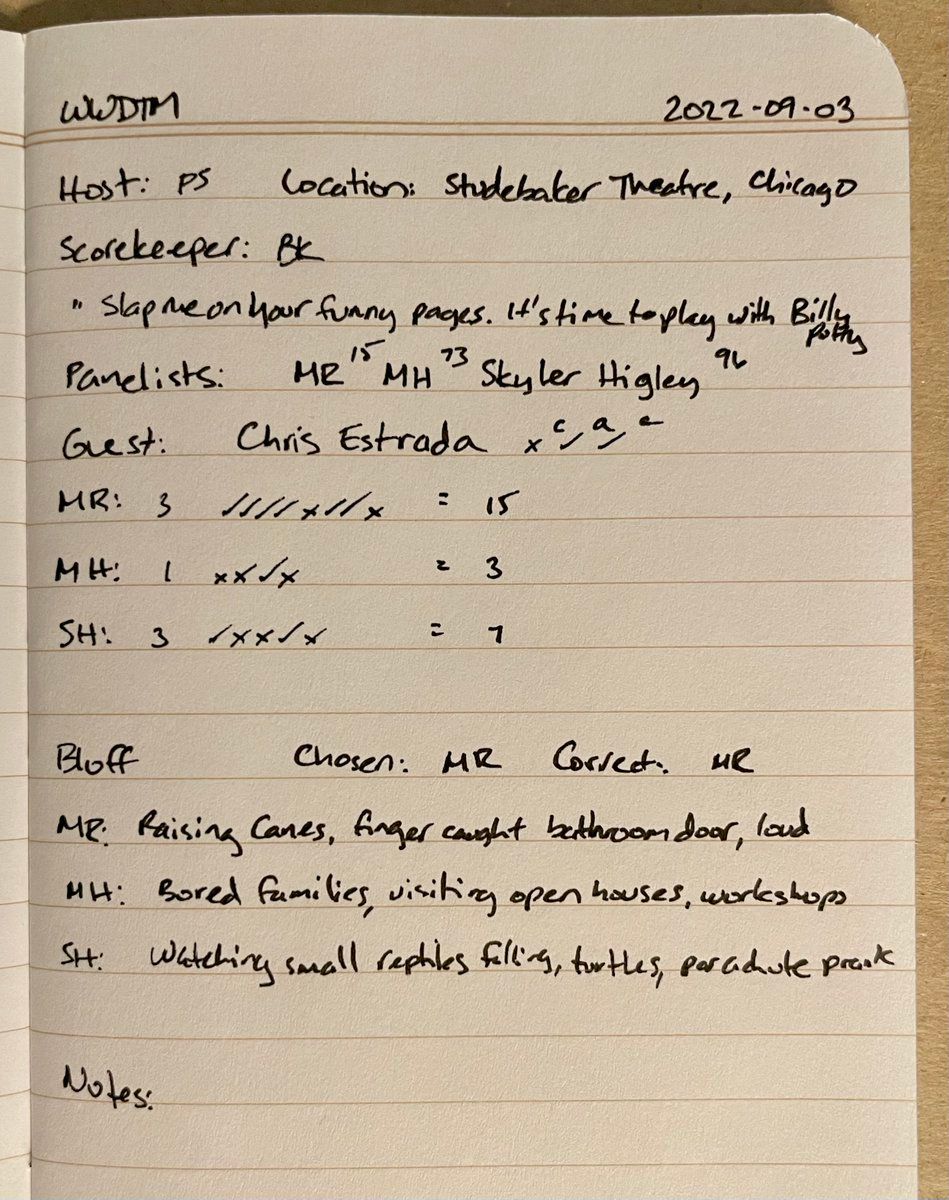 WWDTM 2022-09-03
Host: PS Location: Studebaker Theatre, Chicago
Scorekeeper: BK
" Slap me on your funny pages. It's time to play with Billy
Potty
Panelists: MR 15 MH 73 Skyler Higley 96
Guest: Chris Estrada x c✓ a✓ c
MR: 3 ✓✓✓✓x✓✓x = 15
MH: 1 xx✓x = 3
SH: 3 ✓xx✓x = 7
Bluff Chosen: MR Correct: MR
MR: Raising Canes, finger caught bathroom door, loud
MH: Bored families, visiting open houses, workshops
SH: Watching small reptiles falling, turtles, parachute prank
Notes: